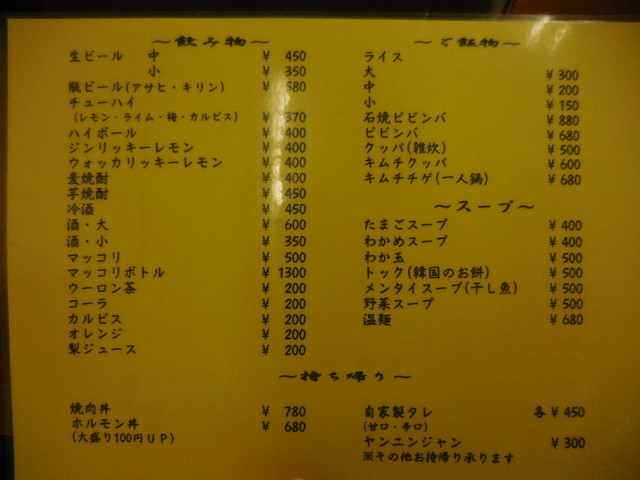 ～飲み物～
生ビール 中 ¥ 450
小 ¥ 350
瓶ビール(アサヒ・キリン) ¥ 580
チューハイ
(レモン・ライム・梅・カルピス) ¥ 370
ハイボール ¥ 400
ジンリッキーレモン ¥ 400
ウォッカリッキーレモン ¥ 400
麦焼酎 ¥ 400
芋焼酎 ¥ 450
冷酒 ¥ 450
酒・大 ¥ 600
酒・小 ¥ 350
マッコリ ¥ 500
マッコリボトル ¥ 1300
ウーロン茶 ¥ 200
コーラ ¥ 200
カルピス ¥ 200
オレンジ ¥ 200
梨ジュース ¥ 200
～ご飯物～
ライス
大 ¥ 300
中 ¥ 200
小 ¥ 150
石焼ビビンバ ¥ 880
ビビンバ ¥ 680
クッパ(雑炊) ¥ 500
キムチクッパ ¥ 600
キムチチゲ(一人鍋) ¥ 680
～スープ～
たまごスープ ¥ 400
わかめスープ ¥ 400
わか玉 ¥ 500
トック(韓国のお餅) ¥ 500
メンタイスープ(干し魚) ¥ 500
野菜スープ ¥ 500
温麺 ¥ 680
～持ち帰り～
焼肉丼 ¥ 780
ホルモン丼 ¥ 680
(大盛り100円UP)
自家製タレ 各 ¥ 450
(甘口・辛口)
ヤンニンジャン ¥ 300
※その他お持帰り承ります